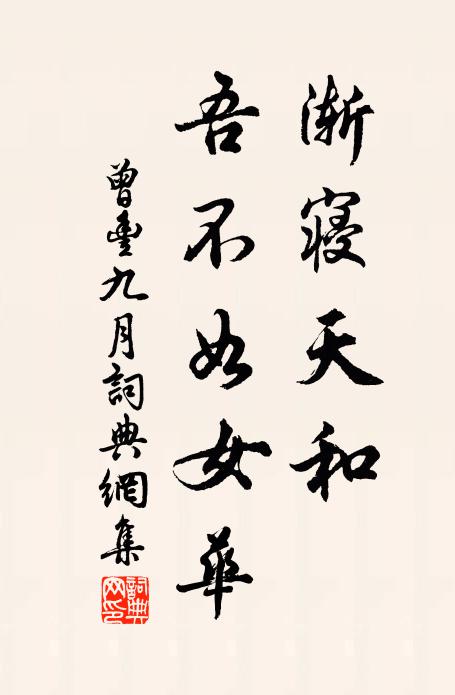 漸寢天和
吾不如女華
曾豐九月詞典網集
詞典網印